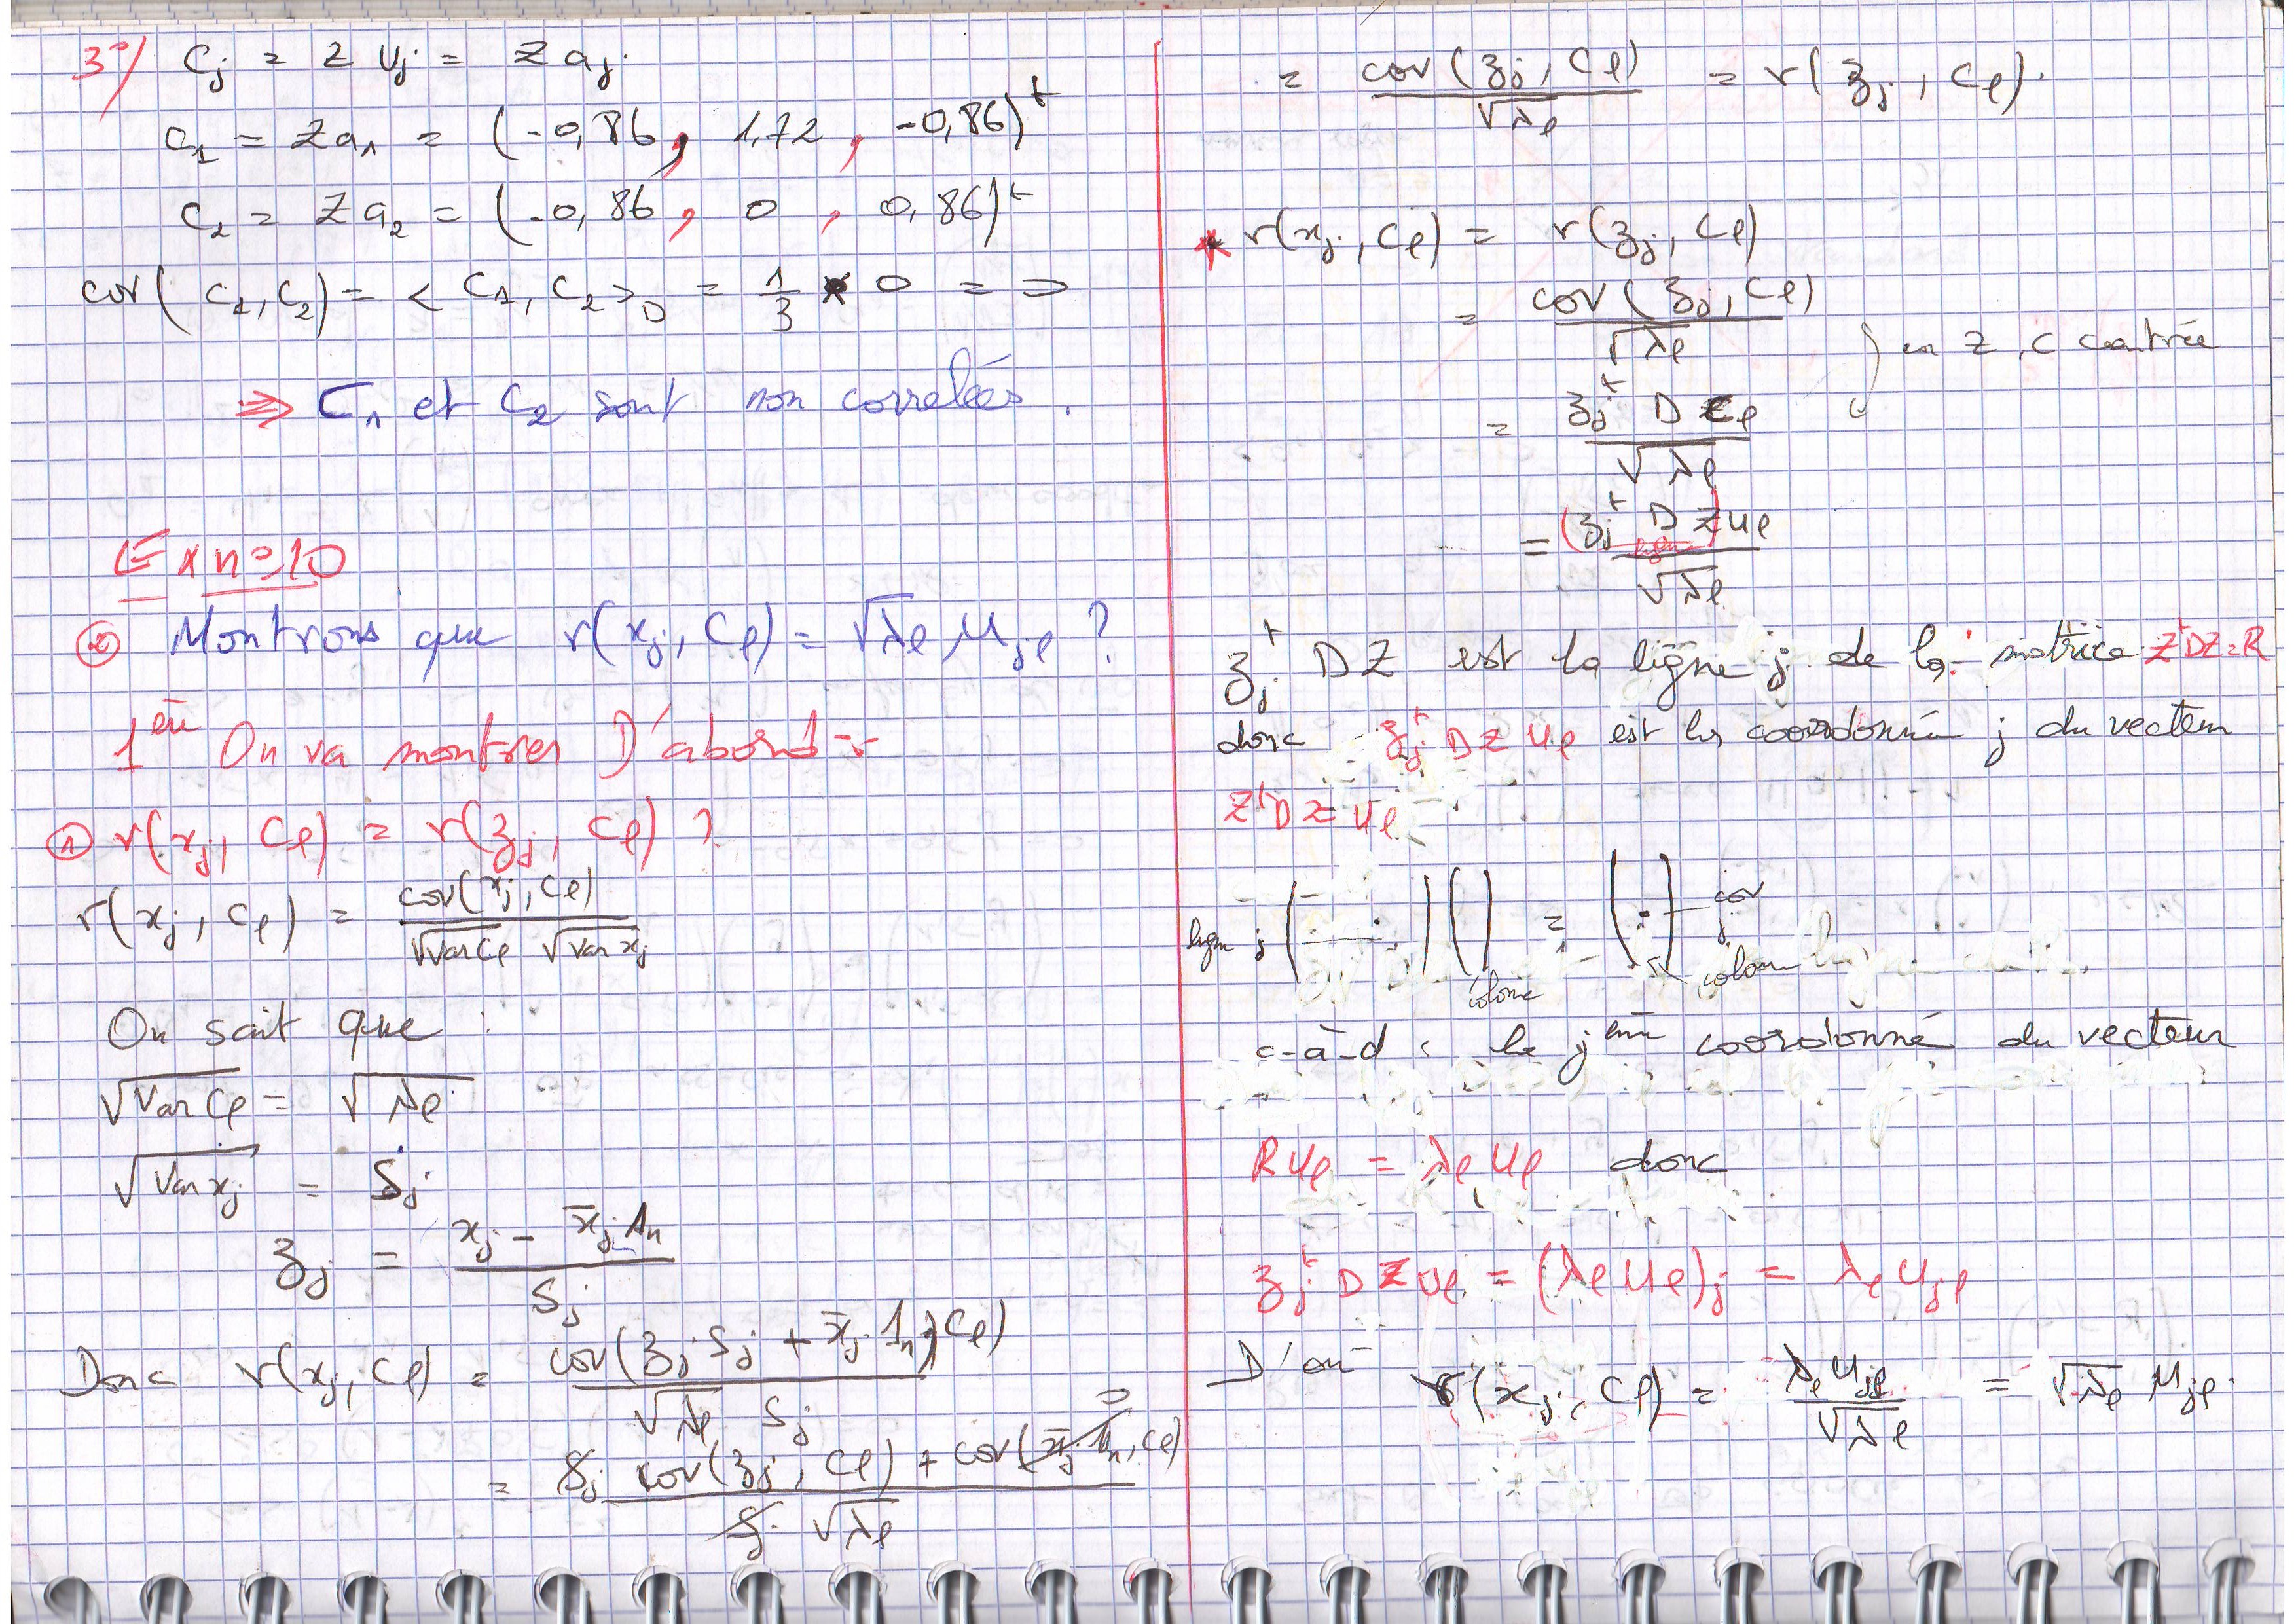 3°/ Cj = Z Uj = Z aj.
C1 = Z a1 = (-0,86, 1,72, -0,86)^t
C2 = Z a2 = (-0,86, 0, 0,86)^t
cov(C1, C2) = < C1, C2 >D = 1/3 × 0 = 0
⇒ C1 et C2 sont non correlées.
Ex n=10
② Montrons que r(xj, Cl) = √λl Ujl ?
1 On va montrer D'abord :
① r(xj, Cl) = r(zj, Cl) ?
r(xj, Cl) = cov(xj, Cl) / (√Var Cl √Var xj)
On sait que :
√Var Cl = √λl
√Var xj = Sj
zj = (xj - x̄j 1n) / Sj
Donc r(xj, Cl) = cov(zj Sj + x̄j 1n, Cl) / (√λl Sj)
= (Sj cov(zj, Cl) + cov(x̄j 1n, Cl)) / (Sj √λl)
= cov(zj, Cl) / √λl = r(zj, Cl).
* r(xj, Cl) = r(zj, Cl)
= cov(zj, Cl) / √λl
Z, C centrée
= zj^t D Cl / √λl
= (zj^t D Z) Ul / √λl
ligne
zj^t D Z est la ligne j de la matrice Z^t D Z = R
donc zj^t D Z Ul est la coordonnée j du vecteur
Z^t D Z Ul
ligne j ( ) ( ) = ( ) cor j
colonne colonne
c-à-d : la j ème coordonné du vecteur
R Ul = λl Ul donc
zj^t D Z Ul = (λl Ul)j = λl Ujl
D'où r(xj, Cl) = λl Ujl / √λl = √λl Ujl.